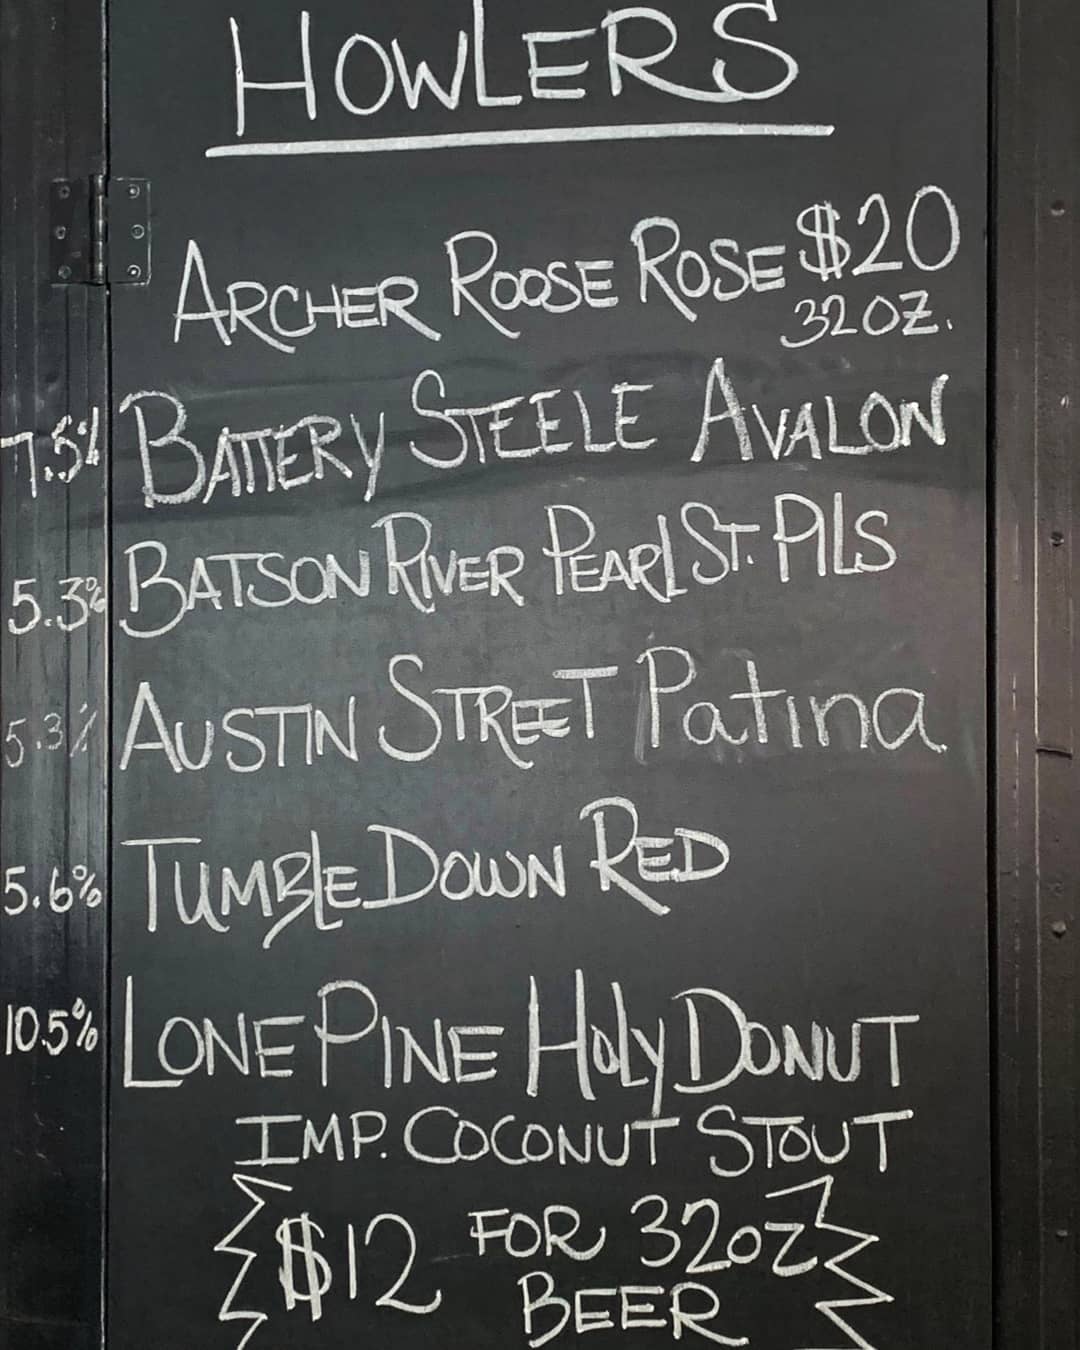 HOWLERS
ARCHER ROOSE ROSE $20
32 OZ.
7.5% BATTERY STEELE AVALON
5.3% BATSON RIVER PEARL ST. PILS
5.3% AUSTIN STREET Patina
5.6% TUMBLE DOWN RED
10.5% LONE PINE HOLY DONUT
IMP. COCONUT STOUT
$12 FOR 32oz
BEER